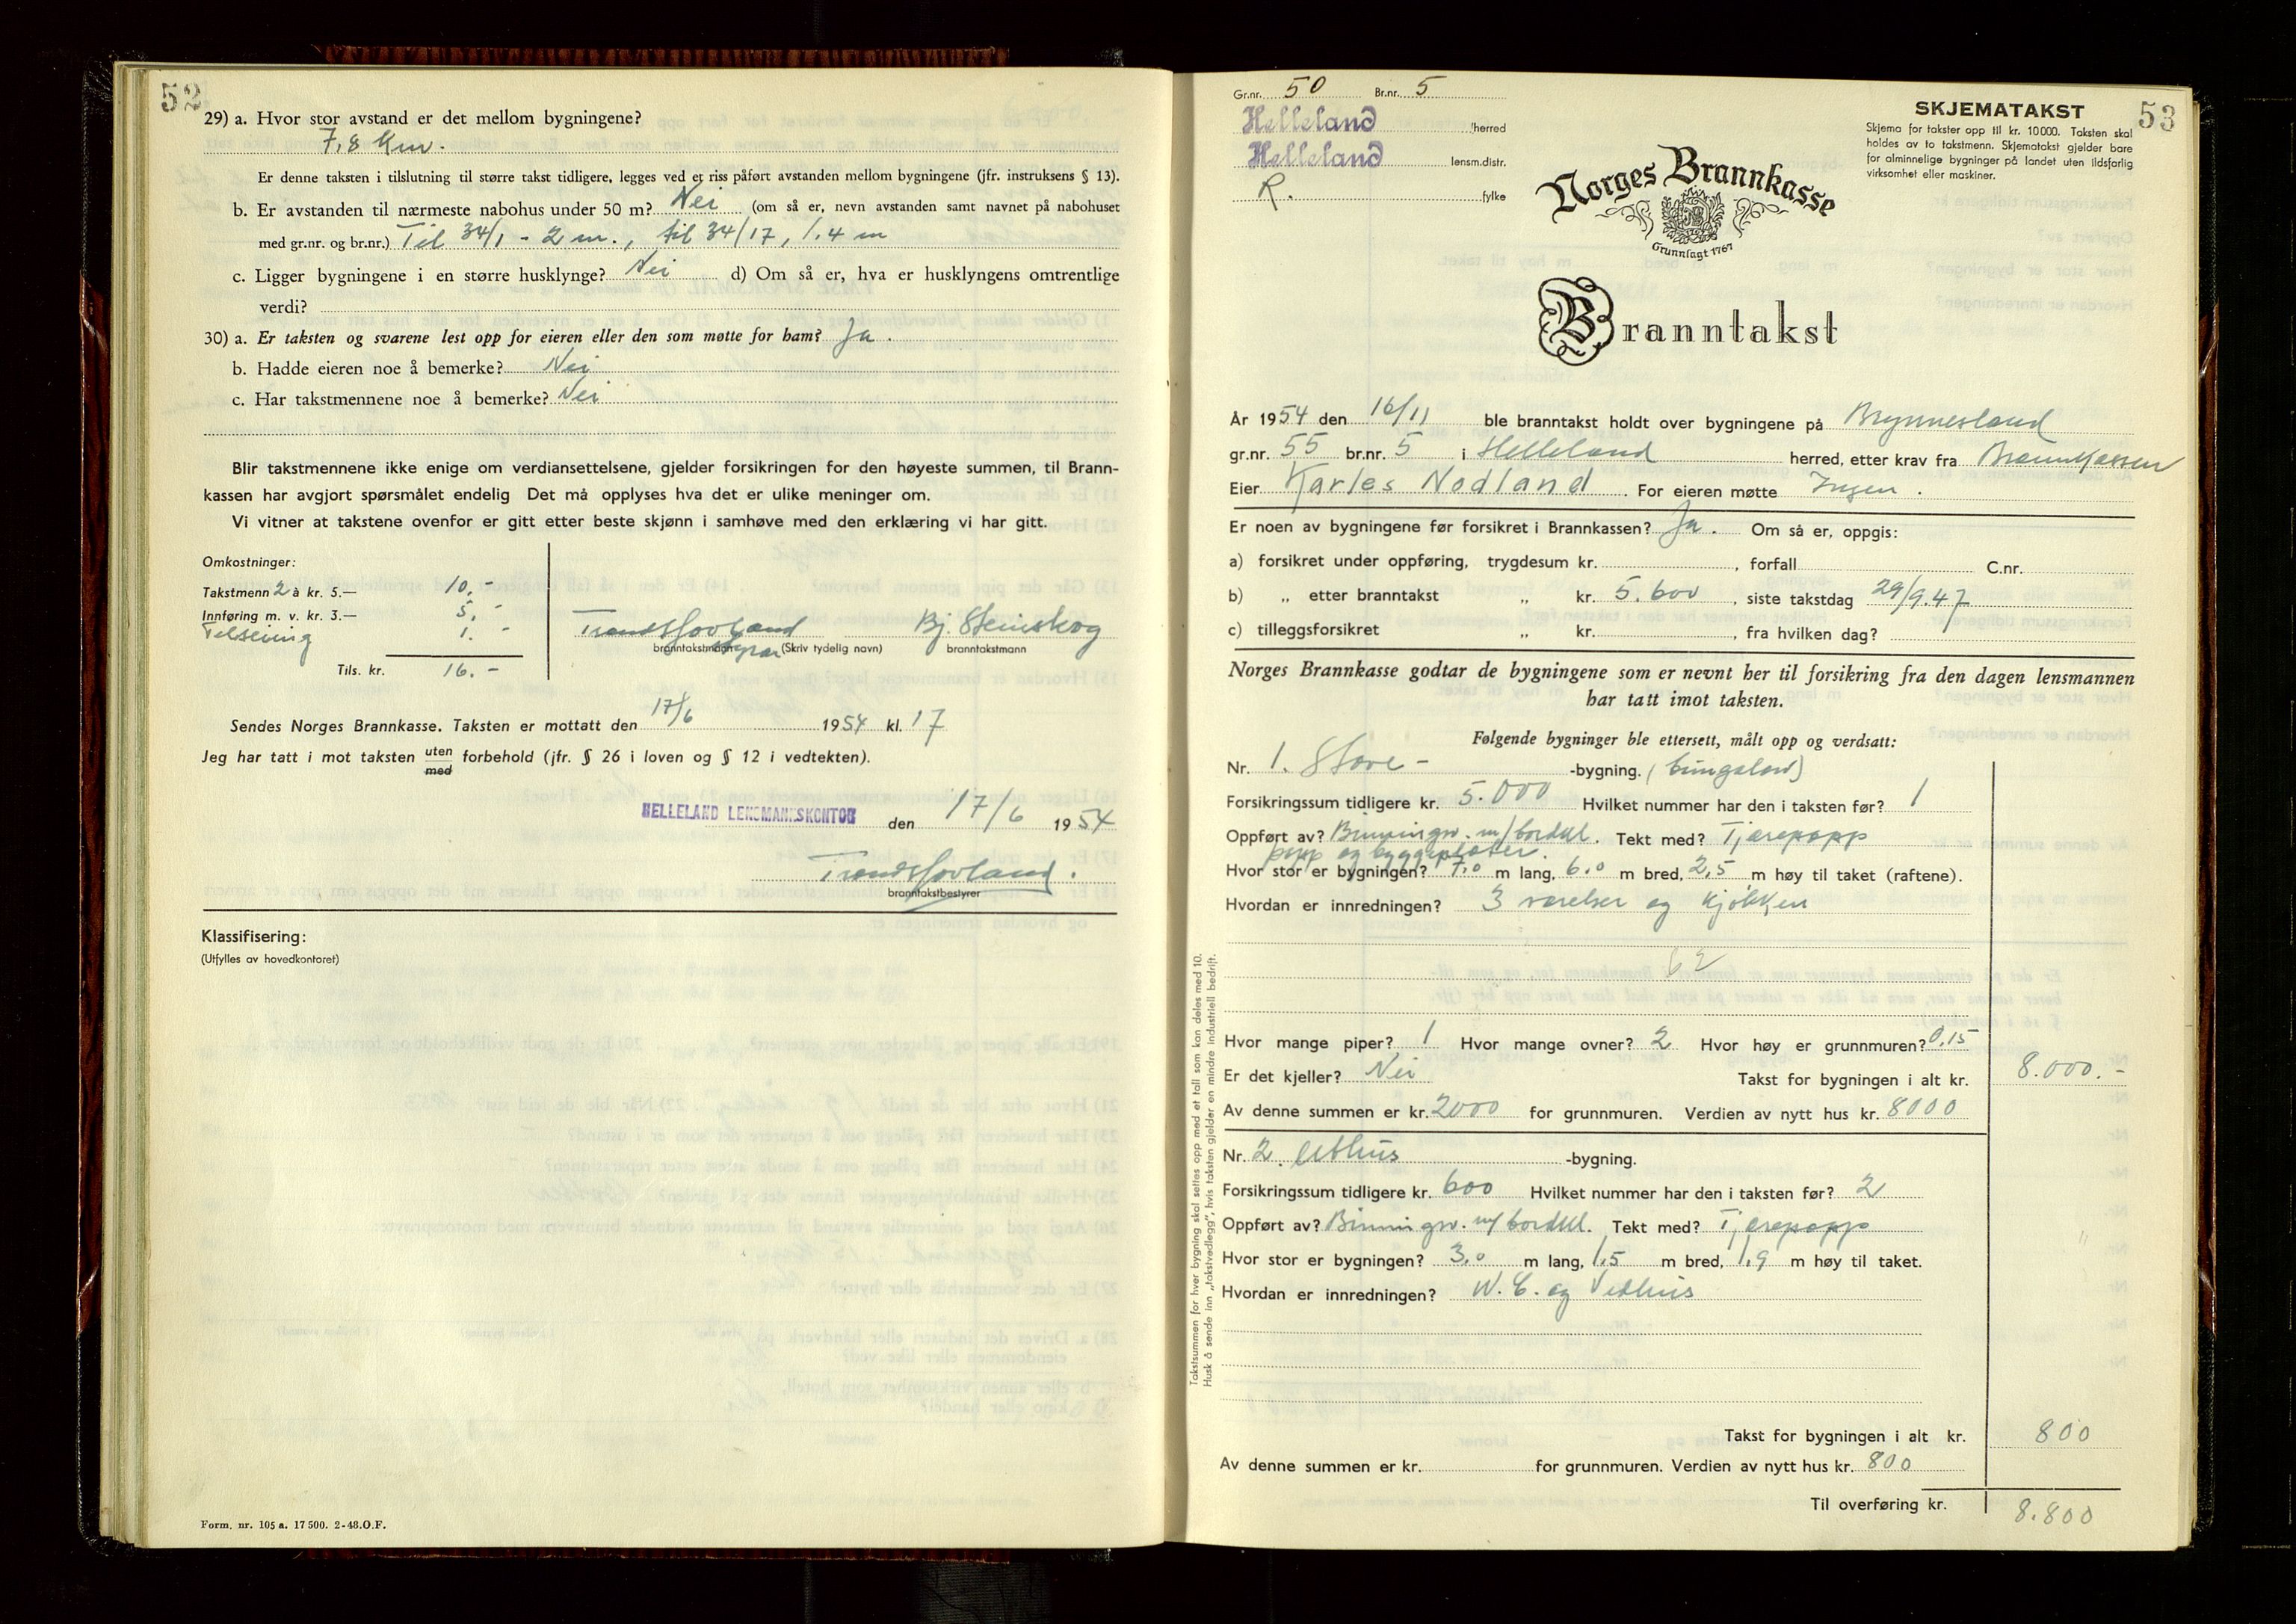 52
29) a. Hvor stor avstand er det mellom bygningene?
7,8 km.
Er denne taksten i tilslutning til større takst tidligere, legges ved et riss påført avstanden mellom bygningene (jfr. instruksens § 13).
b. Er avstanden til nærmeste nabohus under 50 m? Nei (om så er, nevn avstanden samt navnet på nabohuset
med gr.nr. og br.nr.) Til 34/1 - 2 m., til 34/17, 1.4 m
c. Ligger bygningene i en større husklynge? Nei d) Om så er, hva er husklyngens omtrentlige
verdi?
30) a. Er taksten og svarene lest opp for eieren eller den som møtte for ham? Ja.
b. Hadde eieren noe å bemerke? Nei
c. Har takstmennene noe å bemerke? Nei
Blir takstmennene ikke enige om verdiansettelsene, gjelder forsikringen for den høyeste summen, til Brann-
kassen har avgjort spørsmålet endelig Det må opplyses hva det er ulike meninger om.
Vi vitner at takstene ovenfor er gitt etter beste skjønn i samhøve med den erklæring vi har gitt.
Omkostninger:
Takstmenn 2 à kr. 5.— 10.-
Innføring m. v. kr. 3.— 5.-
1.-
Tils. kr. 16.-
Trond Hovland Bj. Steinskog
branntakstmann (Skriv tydelig navn) branntakstmann
Sendes Norges Brannkasse. Taksten er mottatt den 17/6 1954 kl. 17
Jeg har tatt i mot taksten uten
med forbehold (jfr. § 26 i loven og § 12 i vedtekten).
HELLELAND LENSMANNSKONTOR den 17/6 1954
Trond Hovland.
branntakstbestyrer
Klassifisering:
(Utfylles av hovedkontoret)
Form. nr. 105 a. 17 500. 2-48. O.F.
53
Gr.nr. 50 Br.nr. 5
Helleland herred
Helleland lensm.distr.
R. fylke
SKJEMATAKST
Skjema for takster opp til kr. 10000. Taksten skal
holdes av to takstmenn. Skjematakst gjelder bare
for alminnelige bygninger på landet uten ildsfarlig
virksomhet eller maskiner.
Norges Brannkasse
Grunnlagt 1767
Branntakst
År 1954 den 16/11 ble branntakst holdt over bygningene på Brynnesland
gr.nr. 55 br.nr. 5 i Helleland herred, etter krav fra Brannkassen
Eier Karles Nodland. For eieren møtte Ingen.
Er noen av bygningene før forsikret i Brannkassen? Ja. Om så er, oppgis:
a) forsikret under oppføring, trygdesum kr. , forfall C.nr.
b) „ etter branntakst „ kr. 5.600, siste takstdag 29/9.47
c) tilleggsforsikret „ kr. , fra hvilken dag?
Norges Brannkasse godtar de bygningene som er nevnt her til forsikring fra den dagen lensmannen
har tatt imot taksten.
Følgende bygninger ble ettersett, målt opp og verdsatt:
Nr. 1. Stove - -bygning. (bungalow)
Forsikringssum tidligere kr. 5.000 Hvilket nummer har den i taksten før? 1
Oppført av? Binningsv. m/bordkl. Tekt med? Tjærepapp
papp og byggeplater.
Hvor stor er bygningen? 7,0 m lang, 6,0 m bred, 2,5 m høy til taket (raftene).
Hvordan er innredningen? 3 værelser og kjøkken
62
Hvor mange piper? 1 Hvor mange ovner? 2 Hvor høy er grunnmuren? 0,15
Er det kjeller? Nei Takst for bygningen i alt kr. 8.000.-
Av denne summen er kr. 2000 for grunnmuren. Verdien av nytt hus kr. 8000
Nr. 2. Uthus -bygning.
Forsikringssum tidligere kr. 600 Hvilket nummer har den i taksten før? 2
Oppført av? Binningsv. m/bordkl. Tekt med? Tjærepapp
Hvor stor er bygningen? 3,0 m lang, 1,5 m bred, 1,9 m høy til taket.
Hvordan er innredningen? W.C. og Vedhus
Takst for bygningen i alt kr. 800
Av denne summen er kr. for grunnmuren. Verdien av nytt hus kr. 800
Til overføring kr. 8.800
Takstsummen for hver bygning skal settes opp med et tall som kan deles med 10.
Husk å sende inn „takstvedlegg", hvis taksten gjelder en mindre industriell bedrift.